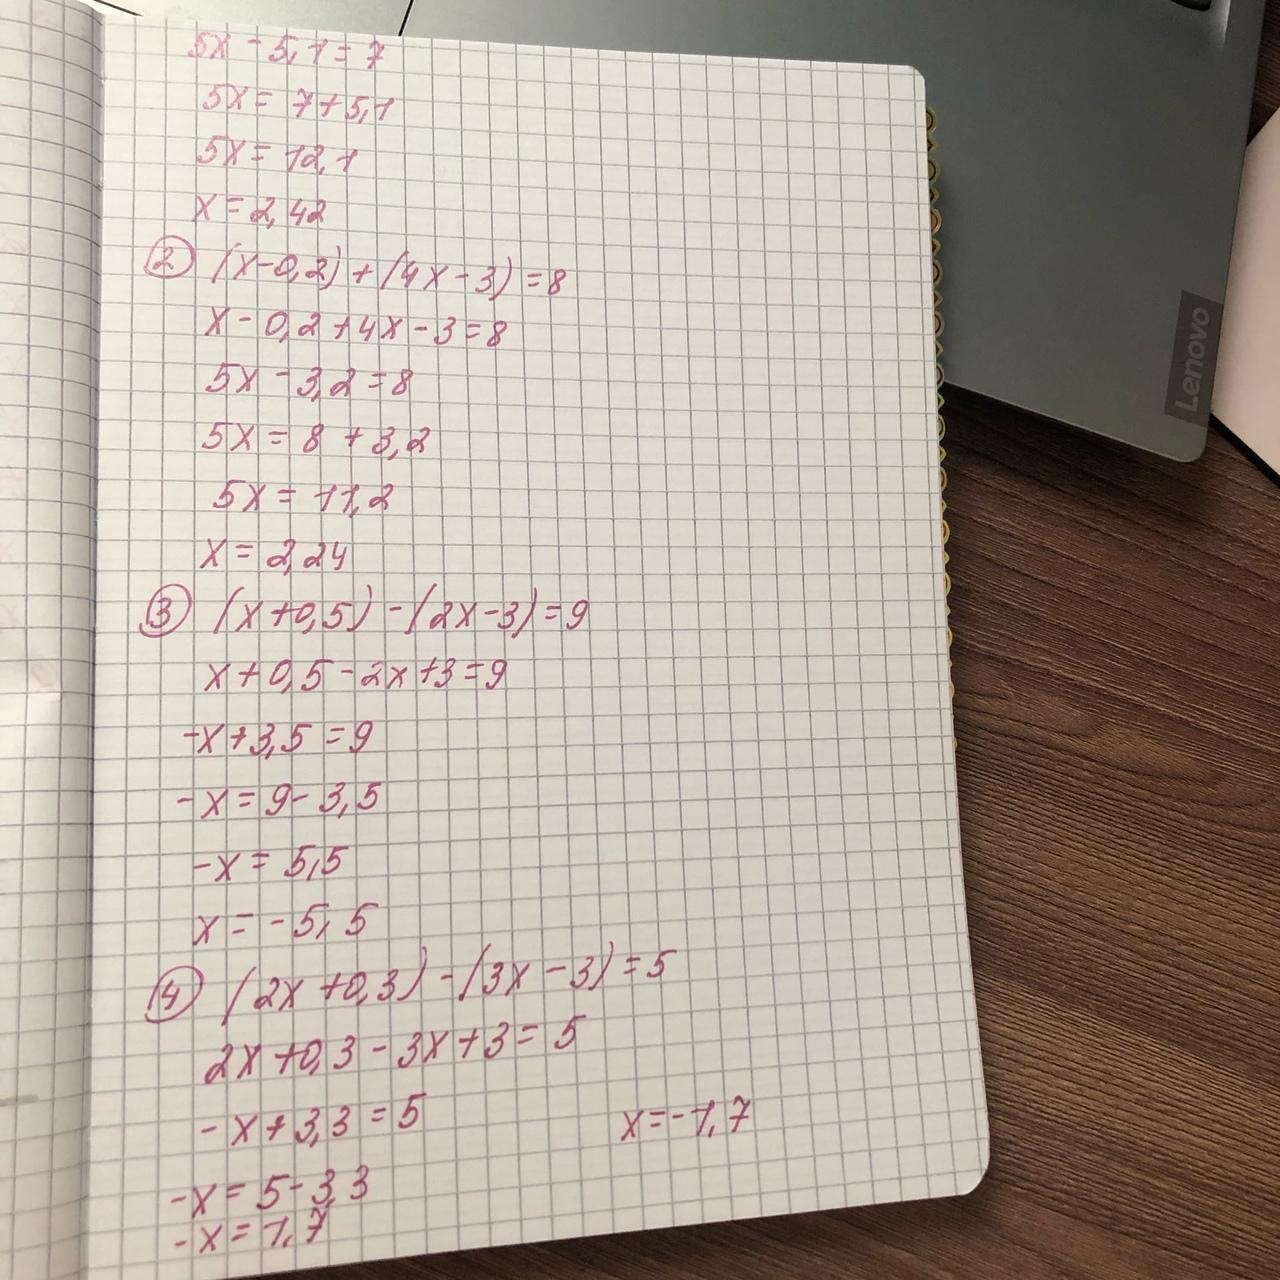 5x - 5,1 = 7
5x = 7 + 5,1
5x = 12,1
x = 2,42
② (x - 0,2) + (4x - 3) = 8
x - 0,2 + 4x - 3 = 8
5x - 3,2 = 8
5x = 8 + 3,2
5x = 11,2
x = 2,24
③ (x + 0,5) - (2x - 3) = 9
x + 0,5 - 2x + 3 = 9
-x + 3,5 = 9
-x = 9 - 3,5
-x = 5,5
x = -5,5
④ (2x + 0,3) - (3x - 3) = 5
2x + 0,3 - 3x + 3 = 5
-x + 3,3 = 5
-x = 5 - 3,3
-x = 1,7
x = -1,7
Lenovo